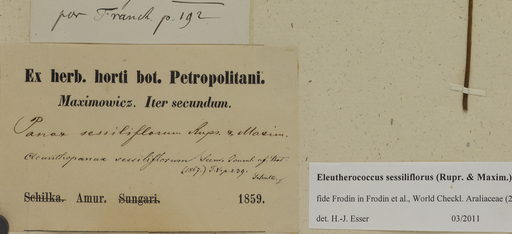 por Franch. p. 192
Ex herb. horti bot. Petropolitani.
Maximowicz. Iter secundum.
Panax sessiliflorum Rupr. & Maxim.
Acanthopanax sessiliflorum Seem. Journ. of Bot
(1867) p. 239.
Schilka. Amur. Sungari. 1859.
Eleutherococcus sessiliflorus (Rupr. & Maxim.)
fide Frodin in Frodin et al., World Checkl. Araliaceae (2
det. H.-J. Esser 03/2011